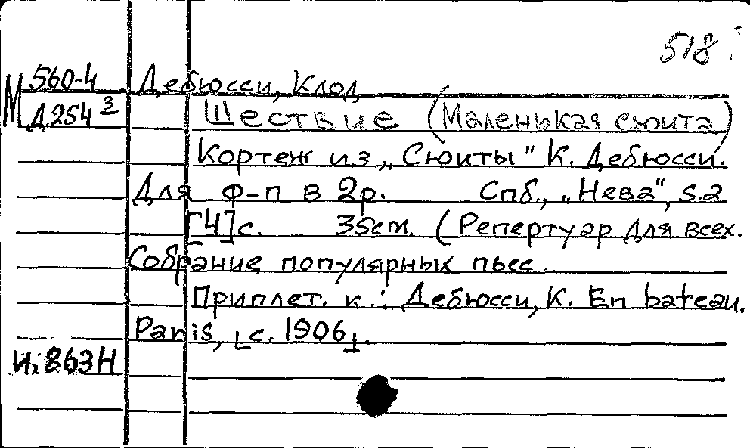 518
М 560-4 Дебюсси, Клод
Д254 3 Шествие (Маленькая сюита)
Кортеж из „Сюиты" К. Дебюсси.
Для ф-п в 2р. Спб., „Нева", s.a
[4]с. 35см. (Репертуар для всех.
Собрание популярных пьес.
Приплет. к: Дебюсси, К. En bateau.
Paris, [c. 1906].
И. 863Н